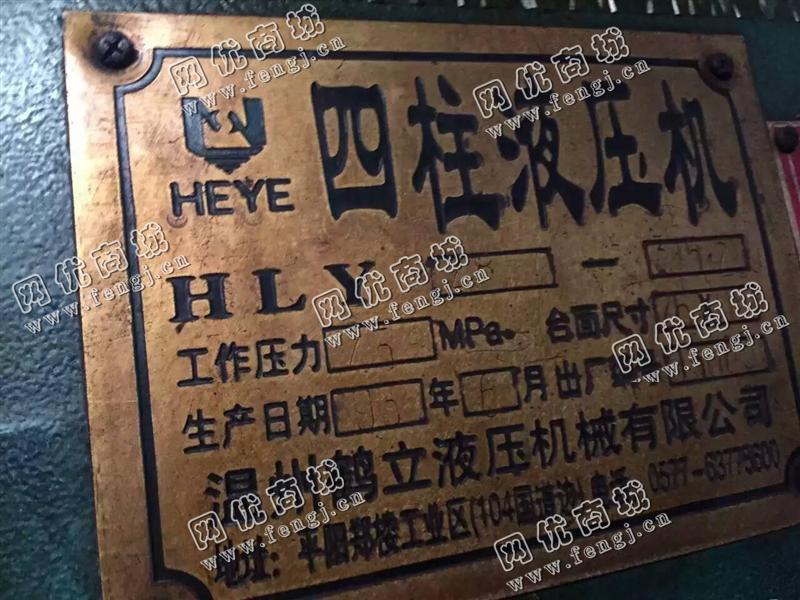 HEYE
四柱液压机
HLY —
工作压力 MPa 台面尺寸
生产日期 年 月 出厂
温州鹤立液压机械有限公司
地址：平阳郑楼工业区(104国道边) 电话 0577-63778600
网优商城
www.fengj.cn
网优商城
www.fengj.cn
网优商城
www.fengj.cn
网优商城
www.fengj.cn
网优商城
www.fengj.cn
网优商城
www.fengj.cn
网优商城
www.fengj.cn
网优商城
www.fengj.cn